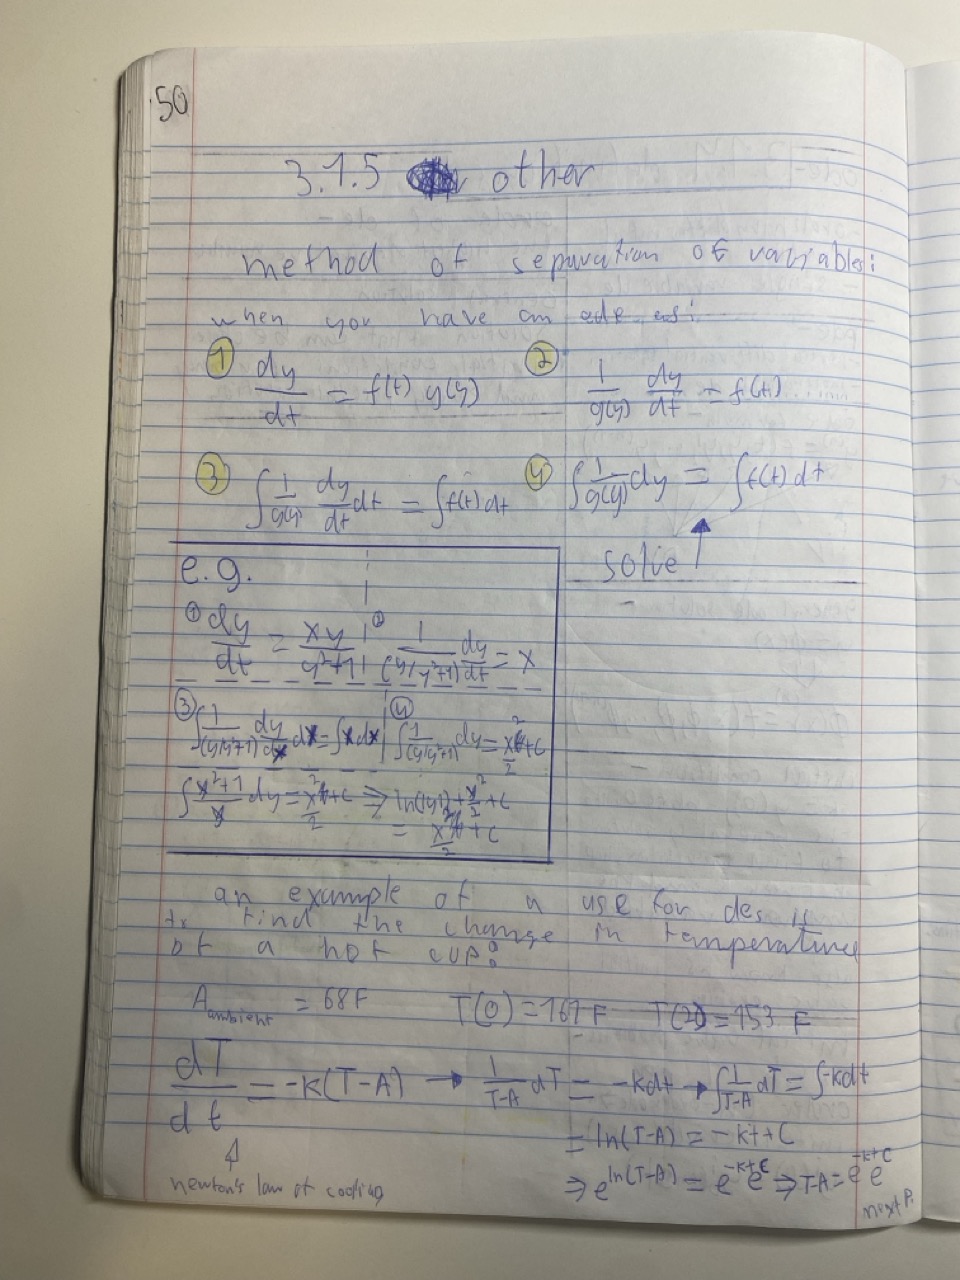 50
3.1.5 other
method of separation of variables:
when you have an ode as:
① dy/dt = f(t) g(y) ② 1/g(y) dy/dt = f(t)
③ ∫ 1/g(y) dy/dt dt = ∫f(t) dt ④ ∫ 1/g(y) dy = ∫f(t) dt
solve ↑
e.g.
① dy/dt = xy/y²+1 ② 1/(y/y²+1) dy/dt = x
③ ∫ 1/(y/y²+1) dy/dx dx = ∫x dx ④ ∫ 1/(y/y²+1) dy = x²/2 + c
dy = x²/2 + c ⇒ ln(|y|) +
= x²/2 + c
an example of a use for des is
to find the change in temperature
of a hot cup:
A ambient = 68F T(0) = 167 F T(2) = 153 F
dT/dt = -k(T-A) → 1/T-A dT = -kdt → ∫ 1/T-A dT = ∫-kdt
= ln(T-A) = -kt+C
⇒ e^ln(T-A) = e^-kt e^C ⇒ T-A = e^-kt e^C
newton's law of cooling
next P.